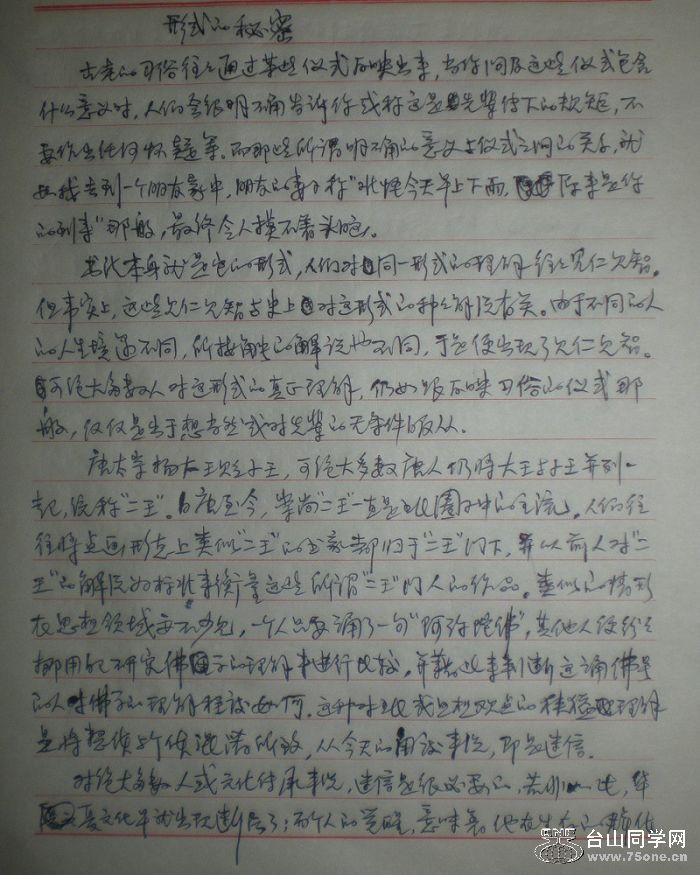 形式的秘密
古老的习俗往往通过某些仪式反映出来，当你问及这些仪式包含
什么意义时，人们会很明确告诉你或称这是先辈传下的规矩，不
要作出任何怀疑等。而那些所谓明确的意义与仪式之间的关系，就
如我去到一个朋友家中，朋友的妻子称“难怪今天早上下雨，原来是你
的到来”那般，最终令人摸不着头脑。
书化本身就是它的形式，人们对同一形式的理解往往见仁见智。
但事实上，这些见仁见智与史上对这形式的种种解说有关。由于不同的人
的人生境遇不同，所接触的解说也不同，于是便出现了见仁见智。
可绝大多数人对这形式的真正理解，仍如跟反映习俗的仪式那
般，仅仅是出于想当然或对先辈的无条件服从。
唐太宗扬大王贬小王，可绝大多数唐人仍将大王与小王并列一
起，统称“二王”。自唐至今，崇尚“二王”一直是书圈子中的主流。人们往
往将点画形态上类似“二王”的书家都归于“二王”门下，并以前人对“二
王”的解说为标准来衡量这些所谓“二王”门人的作品。类似的情形
在思想领域变不少见，一个人只要诵了一句“阿弥陀佛”，其他人便纷纷
挪用记研究佛子的理解来进行比较，并藉此来判断这诵佛号
的人对佛子的理解程度如何。这种对书或思想观点的理解
是将想像与价值混淆所致，从今天的角度来说，即是迷信。
对绝大多数人或文化传承来说，迷信是很必要的，若非如此，华
夏文化早就出现断层了；而个人的觉醒，意味着他在生存的
台山同学网
www.75one.cn